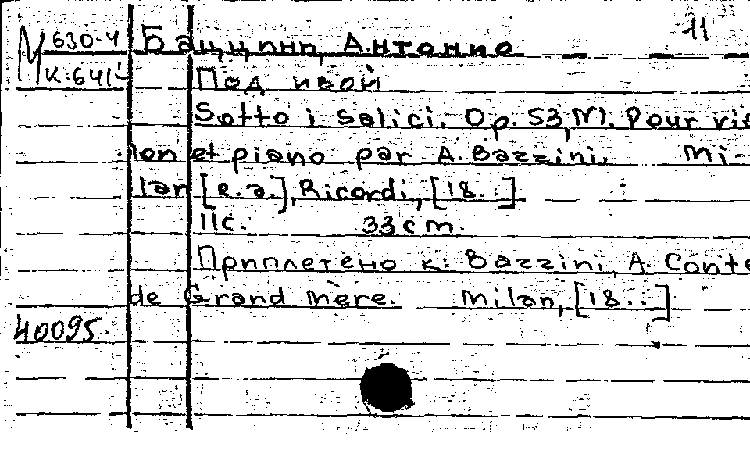 11
М 630-4 Баццини, Антонио
К-641
Под ивой
Sotto i salici. Op. 53, M. Pour vio
lon et piano par A. Bazzini. Mi-
lan [e.a.], Ricordi, [18..]
11с. 33 cm.
Приплетено к: Bazzini, A. Conte
de Grand mère. Milan, [18..]
40095.